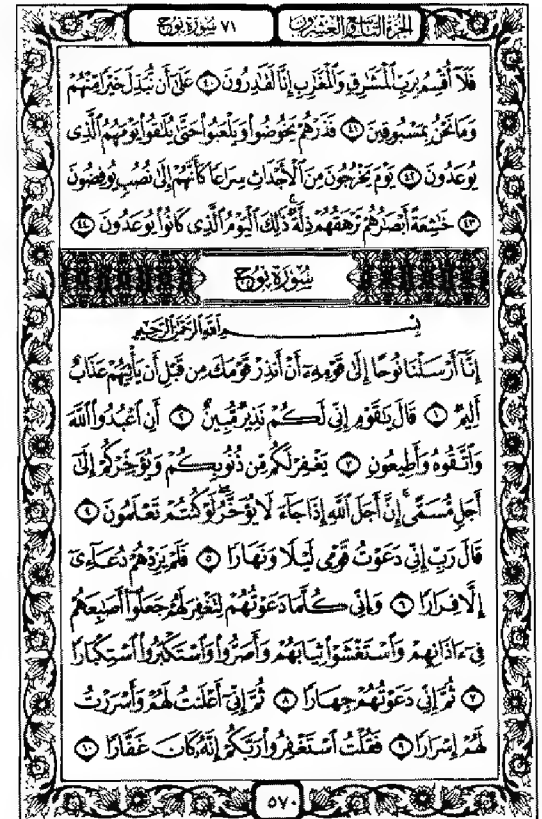 الجزء التاسع والعشرون ٧١ سورة نوح
فَلَآ أُقْسِمُ بِرَبِّ ٱلْمَشَٰرِقِ وَٱلْمَغَٰرِبِ إِنَّا لَقَٰدِرُونَ ٤٠ عَلَىٰٓ أَن نُّبَدِّلَ خَيْرًا مِّنْهُمْ
وَمَا نَحْنُ بِمَسْبُوقِينَ ٤١ فَذَرْهُمْ يَخُوضُوا۟ وَيَلْعَبُوا۟ حَتَّىٰ يُلَٰقُوا۟ يَوْمَهُمُ ٱلَّذِى
يُوعَدُونَ ٤٢ يَوْمَ يَخْرُجُونَ مِنَ ٱلْأَجْدَاثِ سِرَاعًا كَأَنَّهُمْ إِلَىٰ نُصُبٍ يُوفِضُونَ
٤٣ خَٰشِعَةً أَبْصَٰرُهُمْ تَرْهَقُهُمْ ذِلَّةٌ ۚ ذَٰلِكَ ٱلْيَوْمُ ٱلَّذِى كَانُوا۟ يُوعَدُونَ ٤٤
سورة نوح
بِسْمِ ٱللَّهِ ٱلرَّحْمَٰنِ ٱلرَّحِيمِ
إِنَّآ أَرْسَلْنَا نُوحًا إِلَىٰ قَوْمِهِۦٓ أَنْ أَنذِرْ قَوْمَكَ مِن قَبْلِ أَن يَأْتِيَهُمْ عَذَابٌ
أَلِيمٌ ١ قَالَ يَٰقَوْمِ إِنِّى لَكُمْ نَذِيرٌ مُّبِينٌ ٢ أَنِ ٱعْبُدُوا۟ ٱللَّهَ
وَٱتَّقُوهُ وَأَطِيعُونِ ٣ يَغْفِرْ لَكُم مِّن ذُنُوبِكُمْ وَيُؤَخِّرْكُمْ إِلَىٰٓ
أَجَلٍ مُّسَمًّى ۚ إِنَّ أَجَلَ ٱللَّهِ إِذَا جَآءَ لَا يُؤَخَّرُ ۖ لَوْ كُنتُمْ تَعْلَمُونَ ٤
قَالَ رَبِّ إِنِّى دَعَوْتُ قَوْمِى لَيْلًا وَنَهَارًا ٥ فَلَمْ يَزِدْهُمْ دُعَآءِىٓ
إِلَّا فِرَارًا ٦ وَإِنِّى كُلَّمَا دَعَوْتُهُمْ لِتَغْفِرَ لَهُمْ جَعَلُوٓا۟ أَصَٰبِعَهُمْ
فِىٓ ءَاذَانِهِمْ وَٱسْتَغْشَوْا۟ ثِيَابَهُمْ وَأَصَرُّوا۟ وَٱسْتَكْبَرُوا۟ ٱسْتِكْبَارًا
٧ ثُمَّ إِنِّى دَعَوْتُهُمْ جِهَارًا ٨ ثُمَّ إِنِّىٓ أَعْلَنتُ لَهُمْ وَأَسْرَرْتُ
لَهُمْ إِسْرَارًا ٩ فَقُلْتُ ٱسْتَغْفِرُوا۟ رَبَّكُمْ إِنَّهُۥ كَانَ غَفَّارًا ١٠
٥٧٠